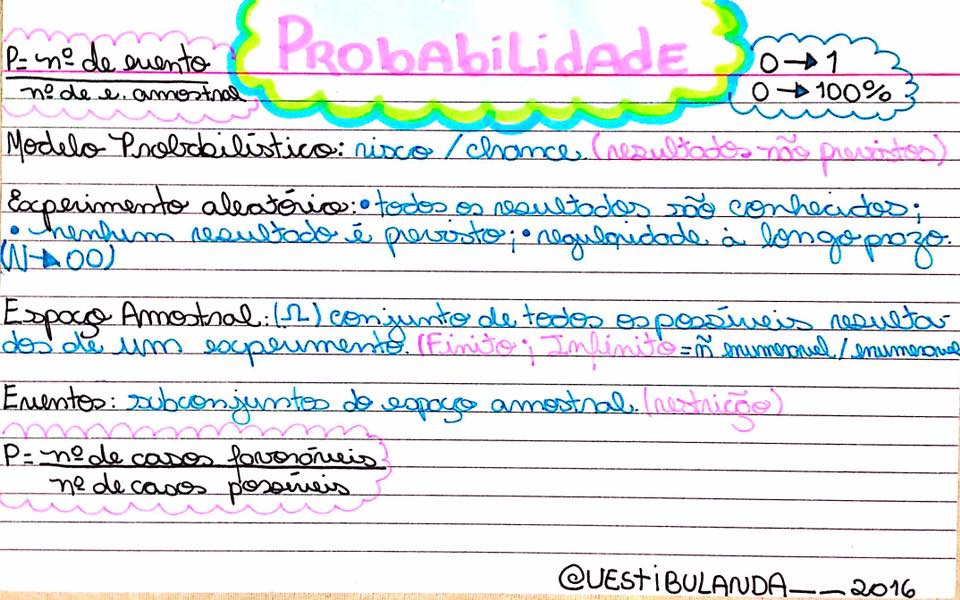 PROBABILIDADE
P= nº de evento
nº de e. amostral
0 → 1
0 → 100%
Modelo Probabilístico: risco / chance (resultados não previstos)
Experimento aleatório: • todos os resultados são conhecidos;
• nenhum resultado é previsto; • regularidade à longo prazo.
(N→∞)
Espaço Amostral: (Ω) conjunto de todos os possíveis resulta-
dos de um experimento. (Finito; Infinito = ñ enumerável / enumerável
Eventos: subconjuntos do espaço amostral. (restrição)
P= nº de casos favoráveis
nº de casos possíveis
@VESTIBULANDA__2016